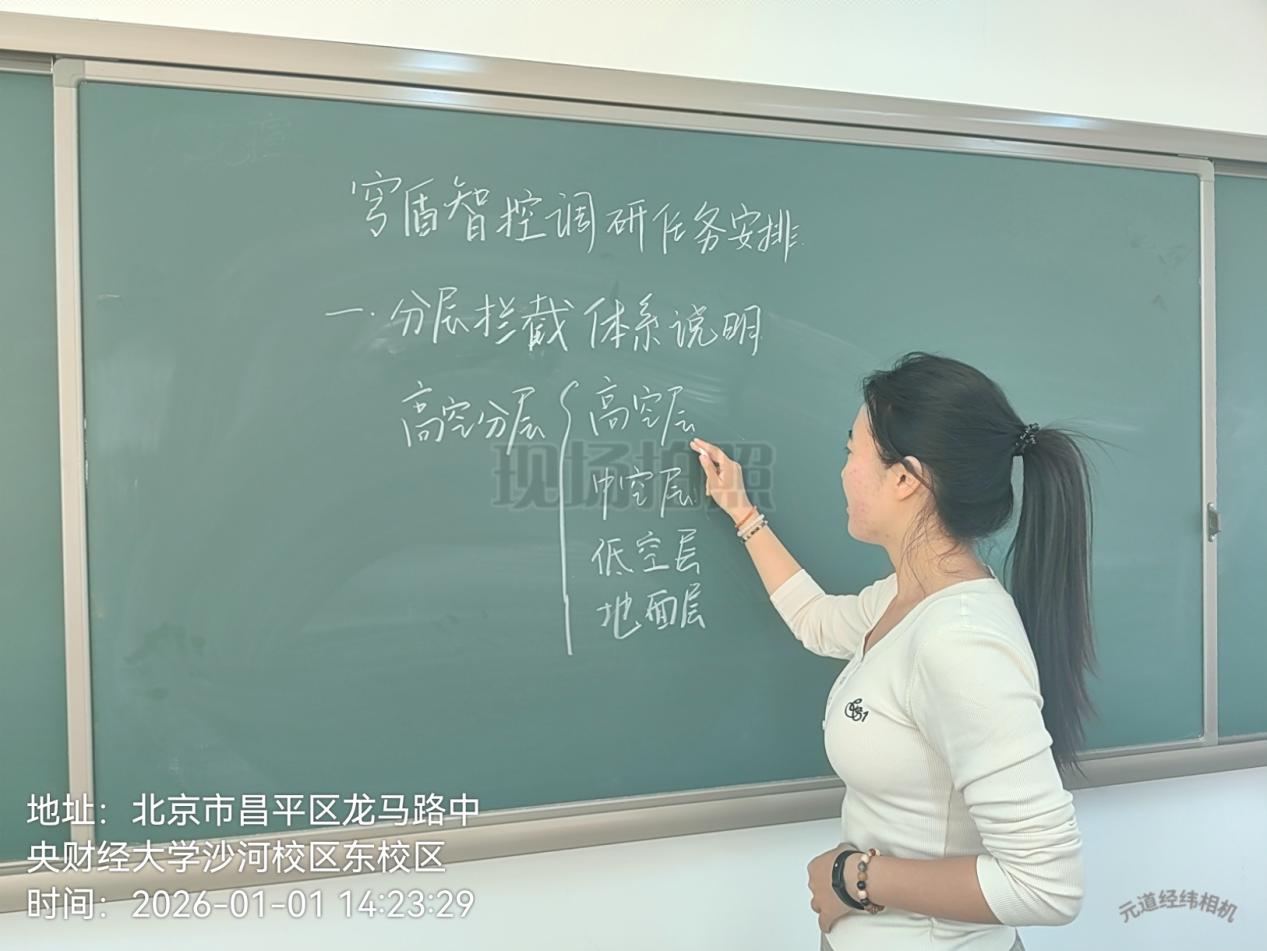 穹盾智控调研任务安排
一.分层拦截体系说明
高空分层
高空层
中空层
低空层
地面层
现场拍照
地址：北京市昌平区龙马路中
央财经大学沙河校区东校区
时间：2026-01-01 14:23:29
元道经纬相机